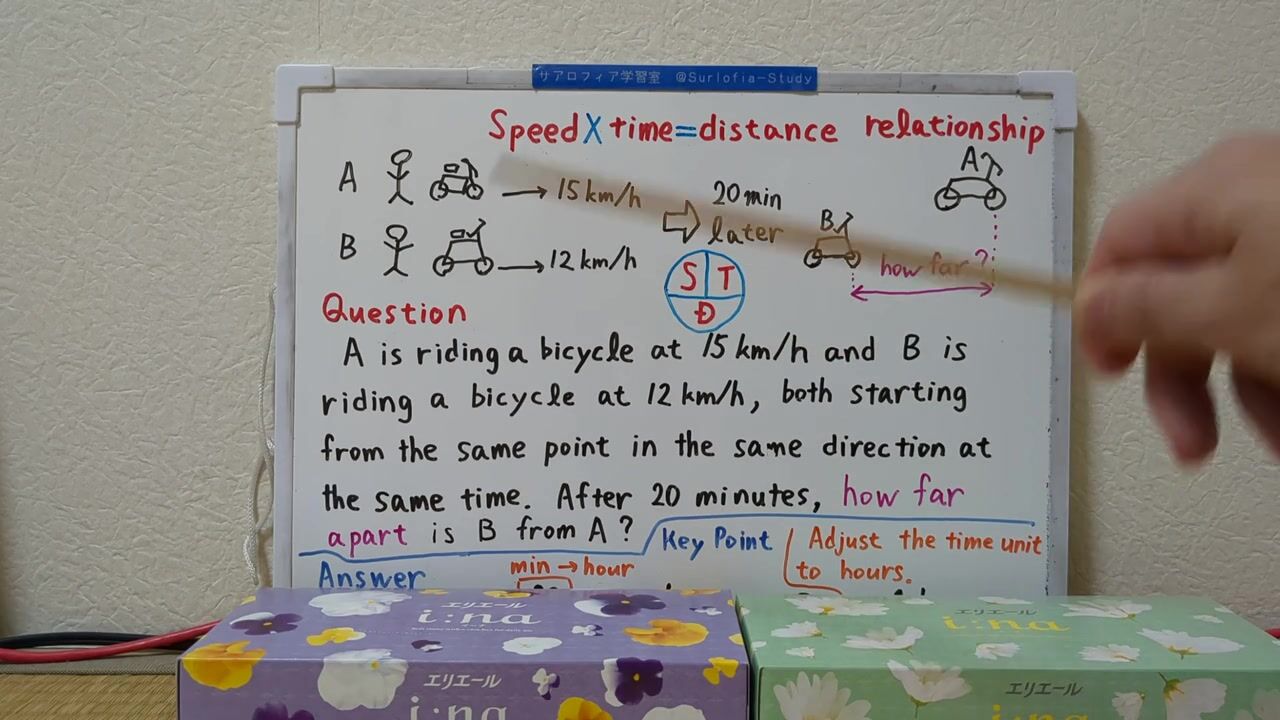 サアロフィア学習室 @Surlofia-Study
Speed X time = distance relationship
A → 15 km/h
20 min
later
A
B → 12 km/h
B
how far ?
S T
D
Question
A is riding a bicycle at 15 km/h and B is
riding a bicycle at 12 km/h, both starting
from the same point in the same direction at
the same time. After 20 minutes, how far
apart is B from A ?
Key Point
Adjust the time unit
to hours.
Answer
min → hour
エリエール
i:na
エリエール
i:na
エリエール
i:na
エリエール
i:na